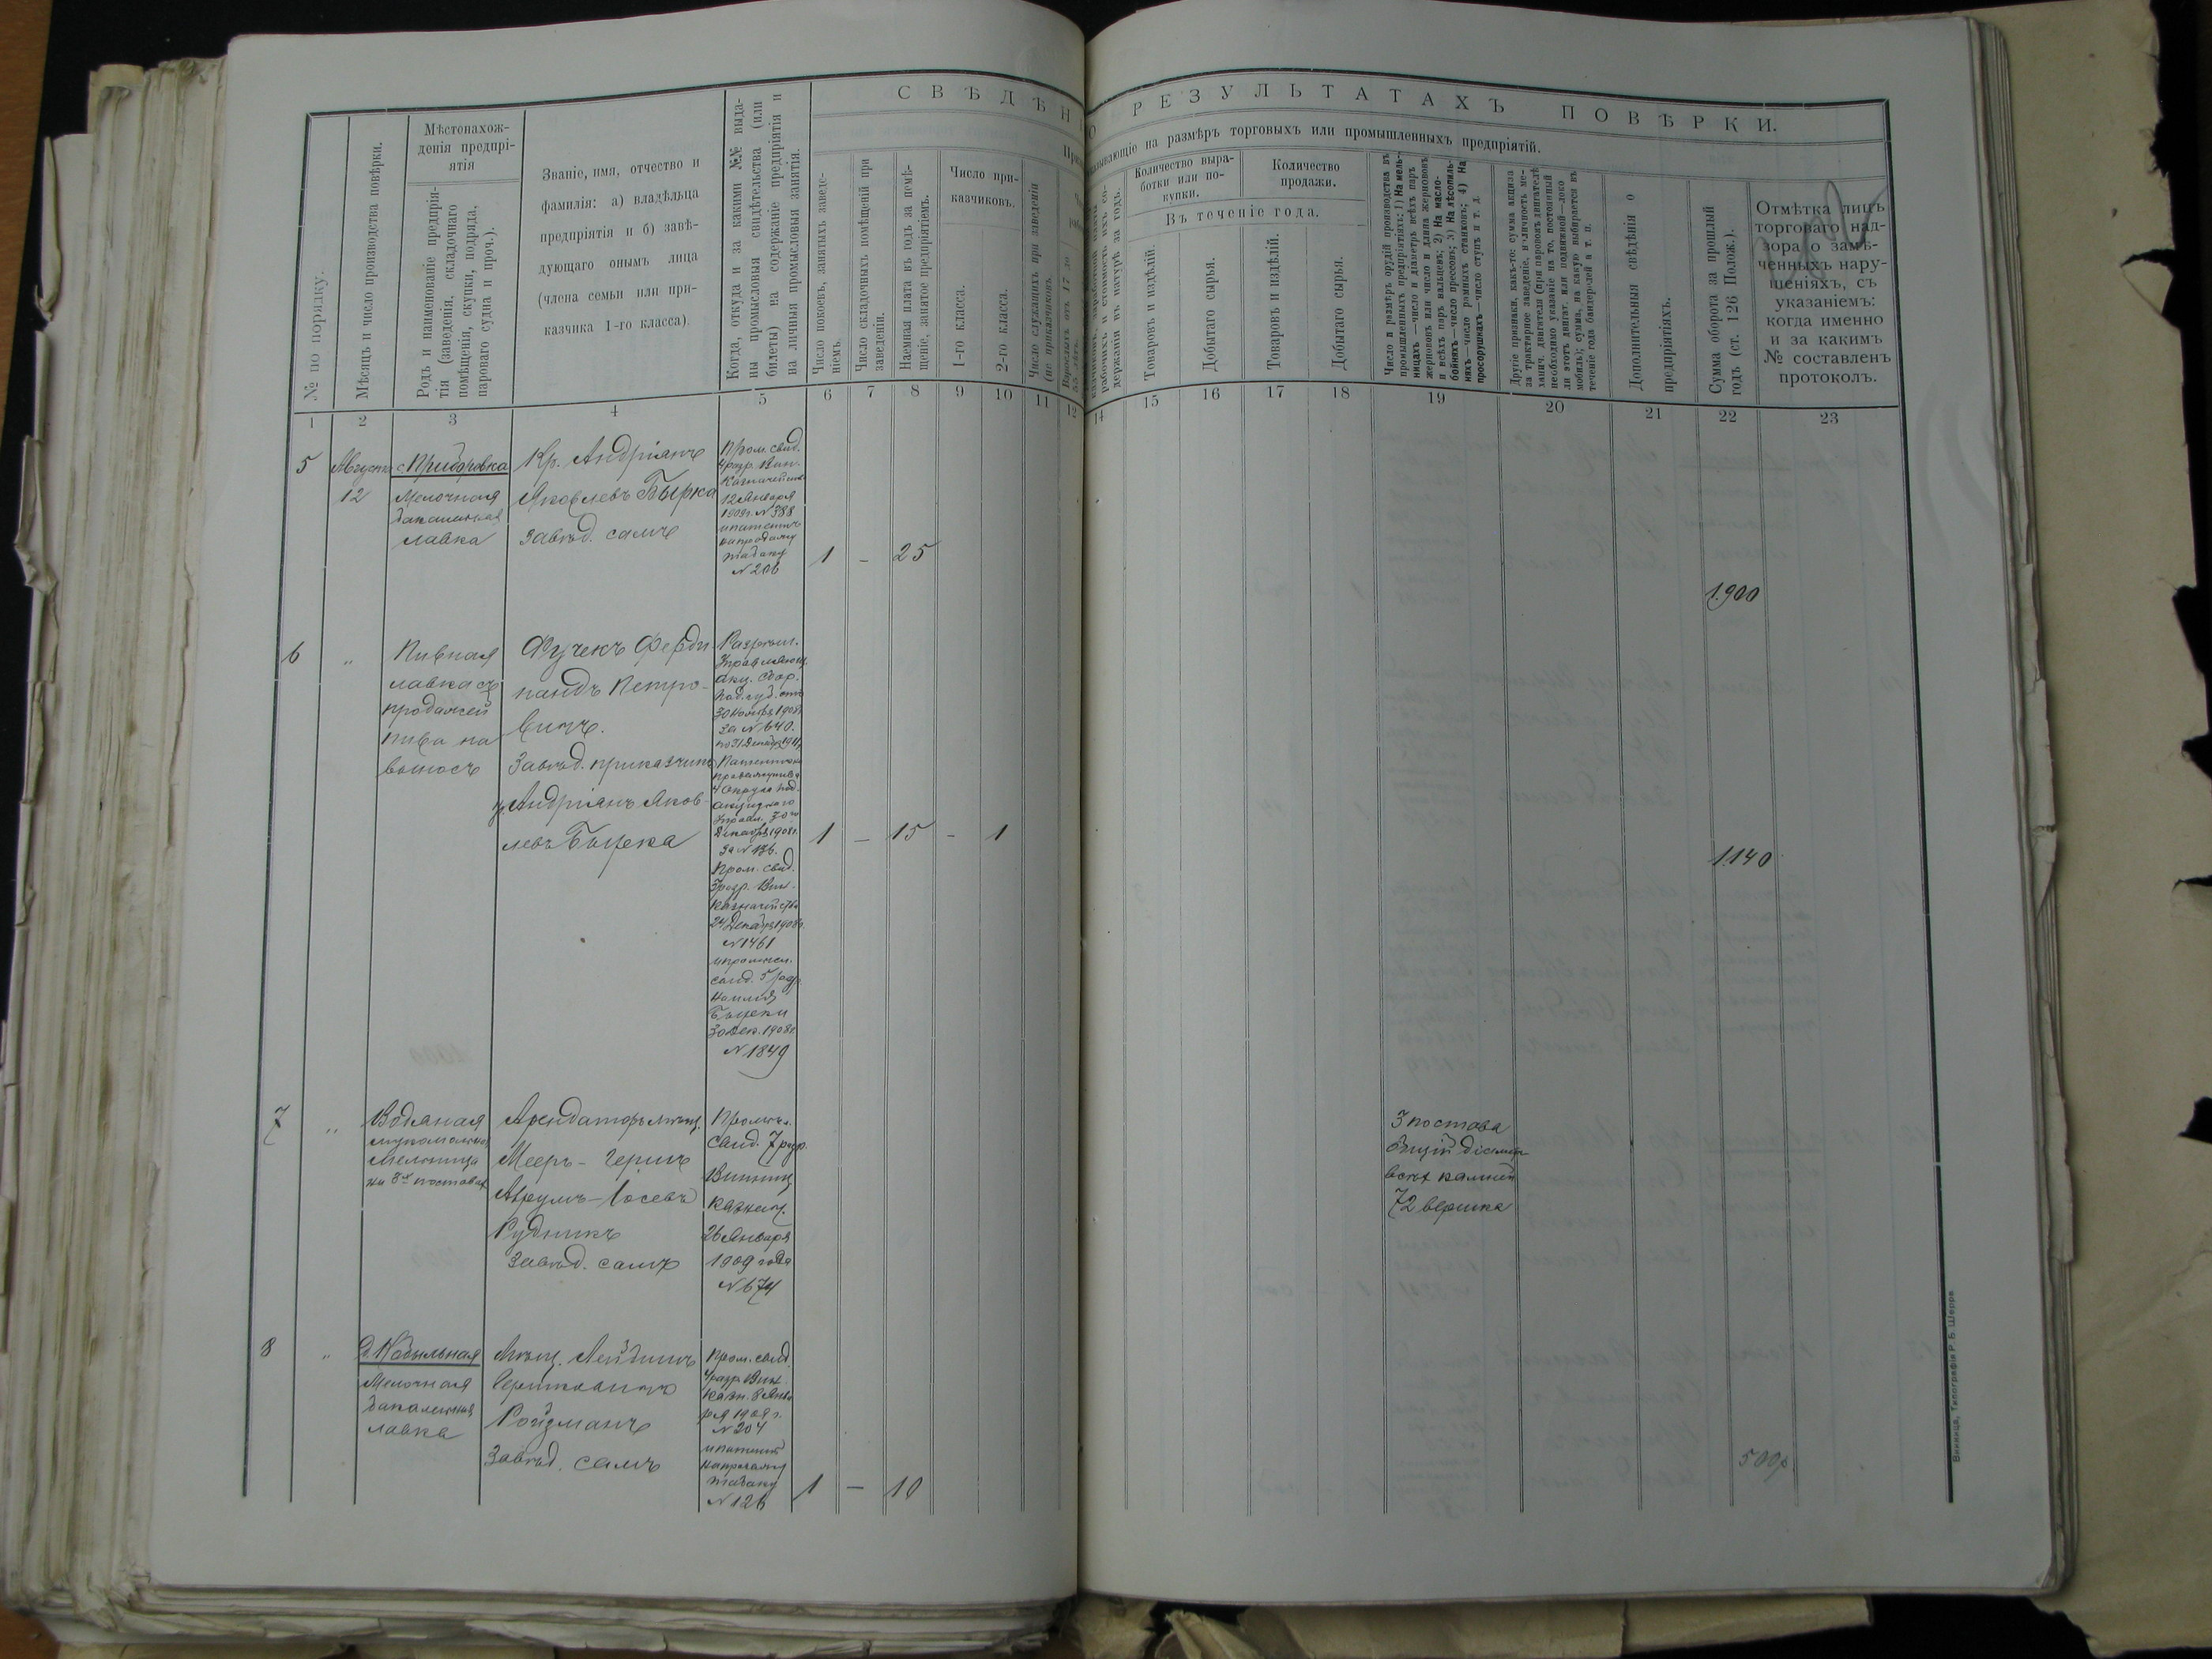 СВѢДѢНІ
О РЕЗУЛЬТАТАХЪ ПОВѢРКИ.
№ по порядку.
Мѣсяцъ и число производства повѣрки.
Мѣстонахож-
денія предпрі-
ятія
Родъ и наименованіе предпрія-
тія (заведенія, складочнаго
помѣщенія, скупки, подряда,
парового судна и проч.).
Званіе, имя, отчество и
фамилія: а) владѣльца
предпріятія и б) завѣ-
дующаго онымъ лица
(члена семьи или при-
казчика 1-го класса).
Когда, откуда и за какими №№ выда-
ны промысловыя свидѣтельства (или
билеты) на содержаніе предпріятія и
на личныя промысловыя занятія.
Число покоевъ, занятыхъ заведе-
ніемъ.
Число складочныхъ помѣщеній при
заведеніи.
Наемная плата въ годъ за помѣ-
щеніе, занятое предпріятіемъ.
Число при-
казчиковъ.
1-го класса.
2-го класса.
Число служащихъ при заведеніи
(не приказчиковъ.
на размѣръ торговыхъ или промышленныхъ предпріятій.
рабочихъ и стоимость ихъ со-
держанія въ натурѣ за годъ.
Количество выра-
ботки или по-
купки.
Количество
продажи.
Въ теченіе года.
Товаровъ и издѣлій.
Добытаго сырья.
Товаровъ и издѣлій.
Добытаго сырья.
Число и размѣръ орудій производства въ
промышленныхъ предпріятіяхъ: 1) На мель-
ницахъ—число и діаметръ всѣхъ паръ
жернововъ или число и длина жернововъ
и всѣхъ паръ вальцевъ; 2) На масло-
бойняхъ—число прессовъ; 3) На лѣсопиль-
няхъ—число рамныхъ станковъ; 4) На
просорушкахъ—число ступъ и т. д.
Другіе признаки, какъ-то: сумма акциза
за трактирное заведеніе, наличность ме-
ханич. двигателя (при паровомъ двигателѣ
необходимо указаніе на то, постоянный
ли этотъ двигат. или подвижной—локо
мобиль); сумма, на какую выбирается въ
теченіе года бандеролей и т. п.
Дополнительныя свѣдѣнія о
предпріятіяхъ.
Сумма оборота за прошлый
годъ (ст. 126 Полож.).
Отмѣтка лицъ
торговаго над-
зора о замѣ-
ченныхъ нару-
шеніяхъ, съ
указаніемъ:
когда именно
и за какимъ
№ составленъ
протоколъ.
1 2 3 4 5 6 7 8 9 10 11 12
14 15 16 17 18 19 20 21 22 23
5
Августа
12
с. Приборовка
Мелочная
бакалейная
лавка
Кр. Андріанъ
Яковлевъ Бырка
Завѣд. самъ
Пром. свид.
4 разр. Вин.
Казначейства
12 Января
1909 г. № 388
и патентъ
на продажу
табаку
№ 206
1 – 25
1.900
6
„
Пивная
лавка съ
продажей
пива на
выносъ
Фучекъ Ферди
нандъ Петро-
вичъ.
Завѣд. приказчикъ
Андріанъ Яков-
левъ Бырка
акц. сбор.
30 Ноября 1908
за № 640.
по 31 Декабр.
Декабря 1908 г.
Пром. свид.
3 разр. Вин.
Казначейства
24 Декабр. 1908 г.
№ 1461
свид. 5 разр.
на имя
Бырки
30 Дек. 1908 г.
№ 1849
1 – 15 – 1
1.140
7
„
Водяная
мукомольная
Мельница
Арендаторъ мѣщ.
Мееръ-Гершъ
Рудникъ
Завѣд. самъ
Промысл.
Свид. 7 разр.
Винниц.
Казнач.
26 Января
1909 года
№ 674
3 постава
Общій діаметр
всѣх камней
72 вершка
8
„
д. Кобыльная
Мелочная
бакалейная
лавка
Ройзманъ
Завѣд. самъ
Пром. свид.
4 разр. Вин.
Казн. 8 Янва
ря 1909 г.
№ 204
и патентъ
на продажу
табаку
№ 126
1 – 10
500 р.
Винница, Типографія Р. Б. Шерра